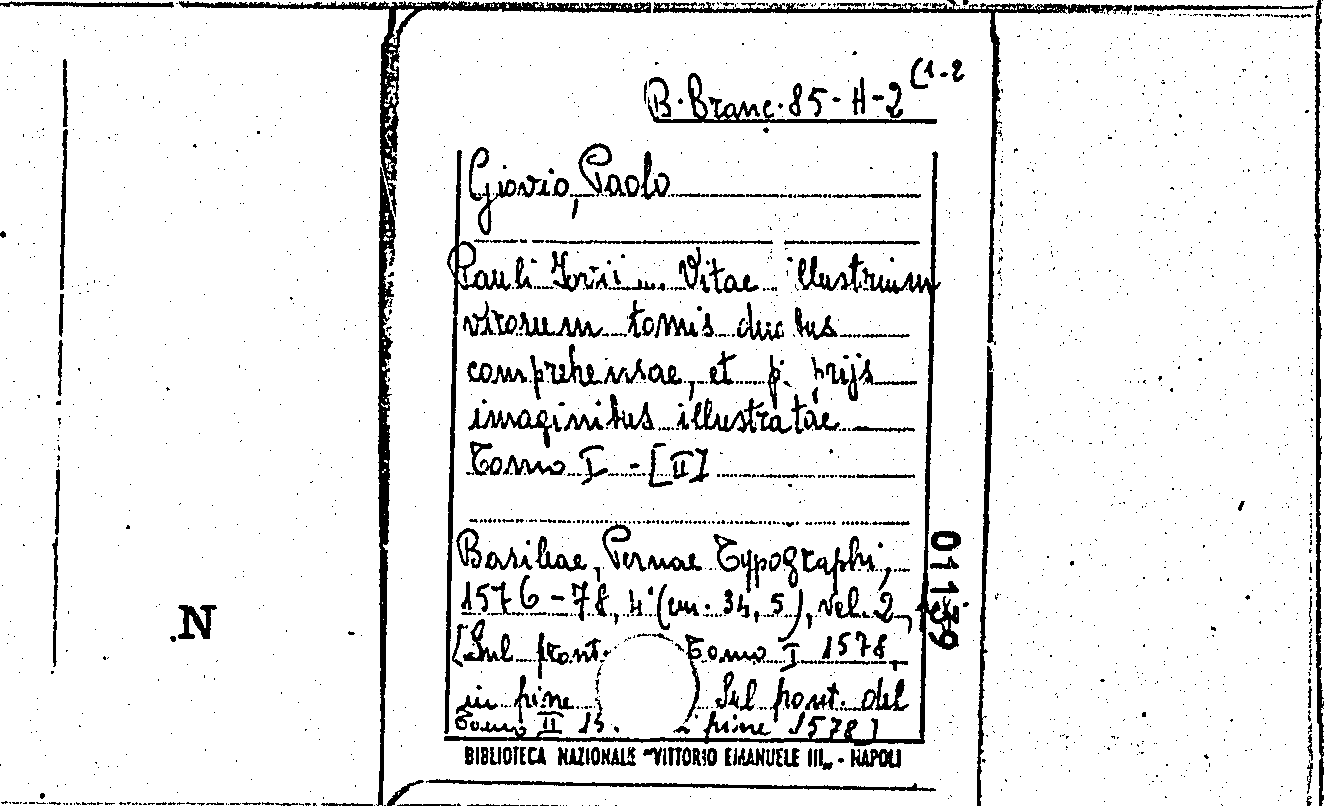 B. Branc. 85-H-2 (1-2
Giovio, Paolo
Pauli Jovii ... Vitae illustrium
virorum tomis duobus
comprehensae, et p. prijs
imaginibus illustratae
Tomo I - [II]
Basileae, Pernae Typographi,
1576-78, 4° (cm. 34,5), vol. 2,
[Sul front. Tomo I 1578,
in fine Sul front. del
Tomo II 15 fine 1578]
01139
N
BIBLIOTECA NAZIONALE "VITTORIO EMANUELE III„ - NAPOLI